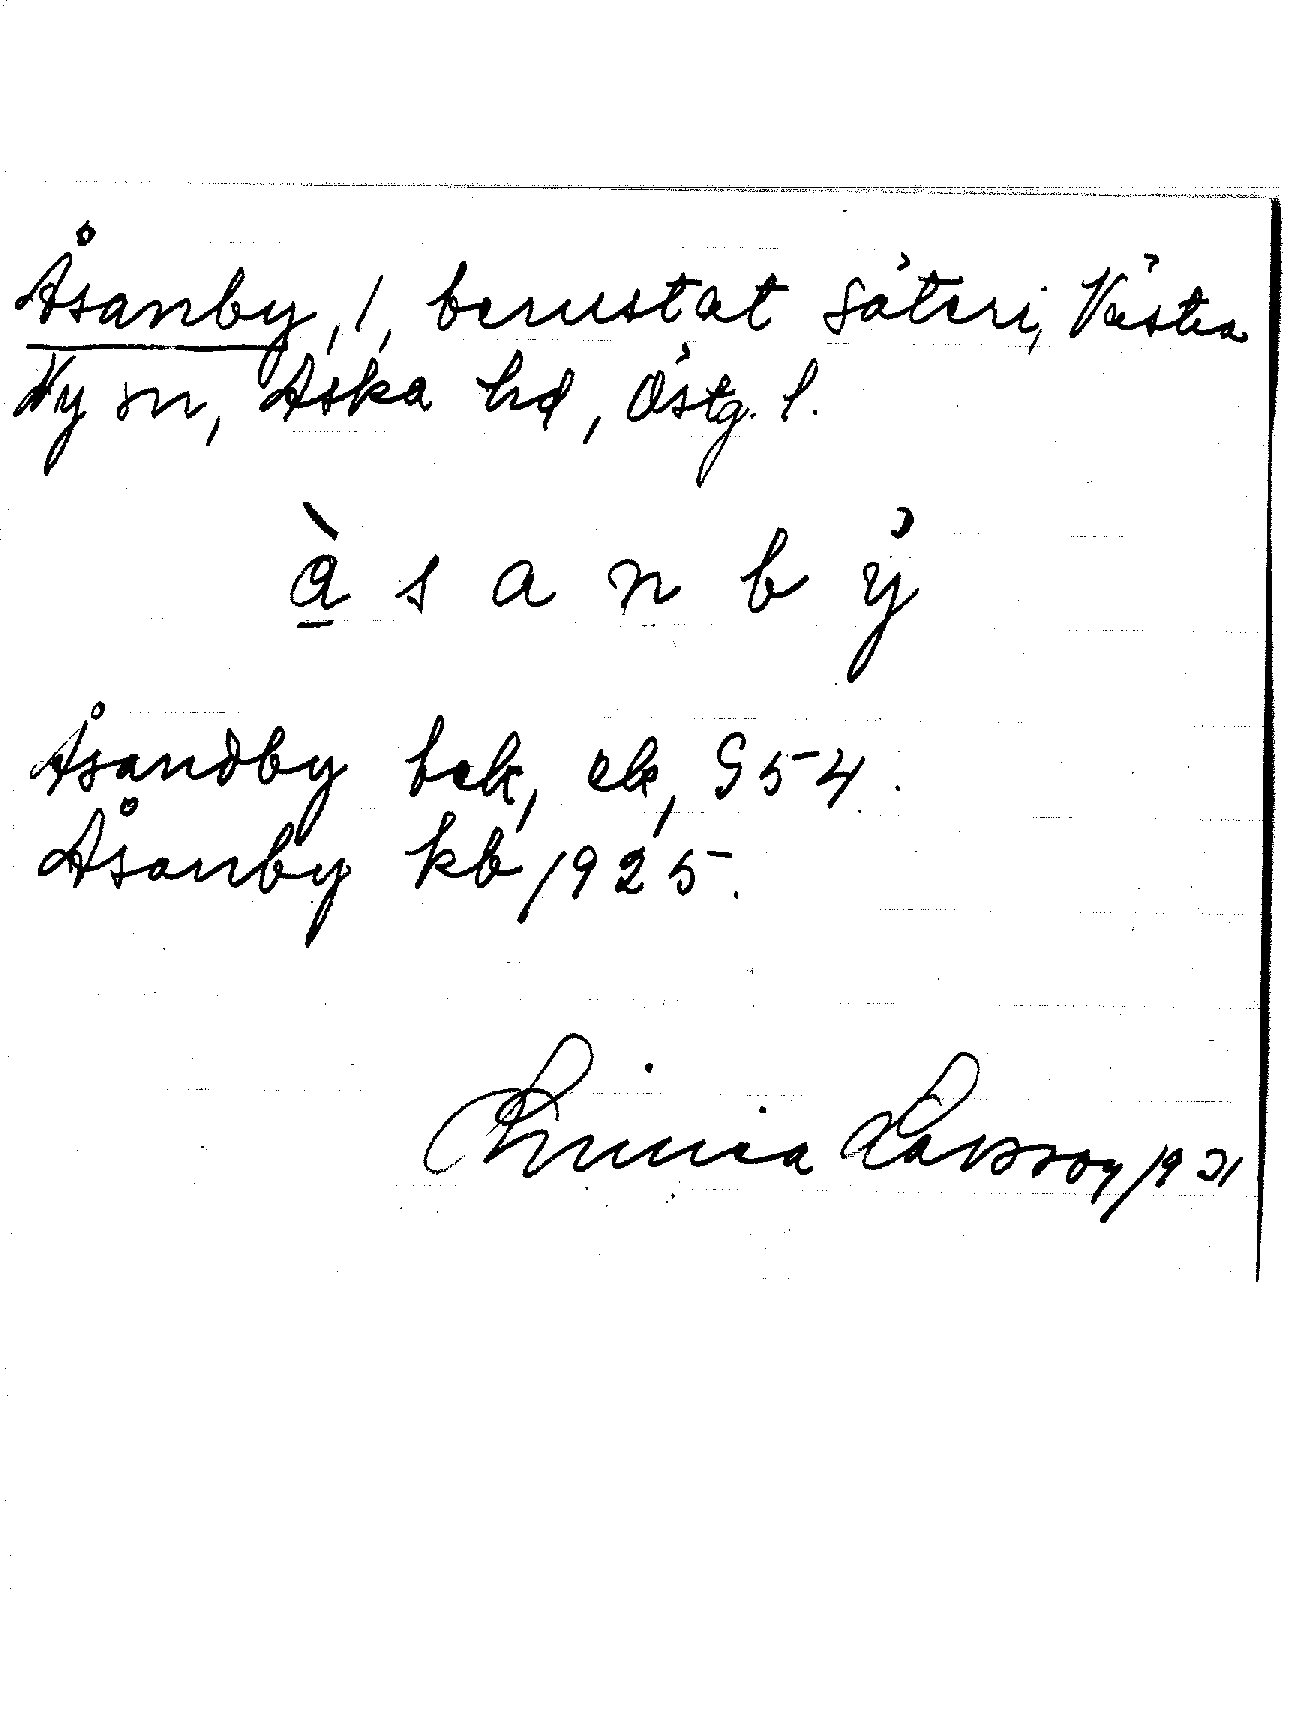 Åsanby, 1, berustat säteri, Västra
Ny sn, Aska hd, Östg. l.
å s a n b y
Åsandby bek, ek, G 54.
Åsanby kb 1925.
Linnea Larsson 1931